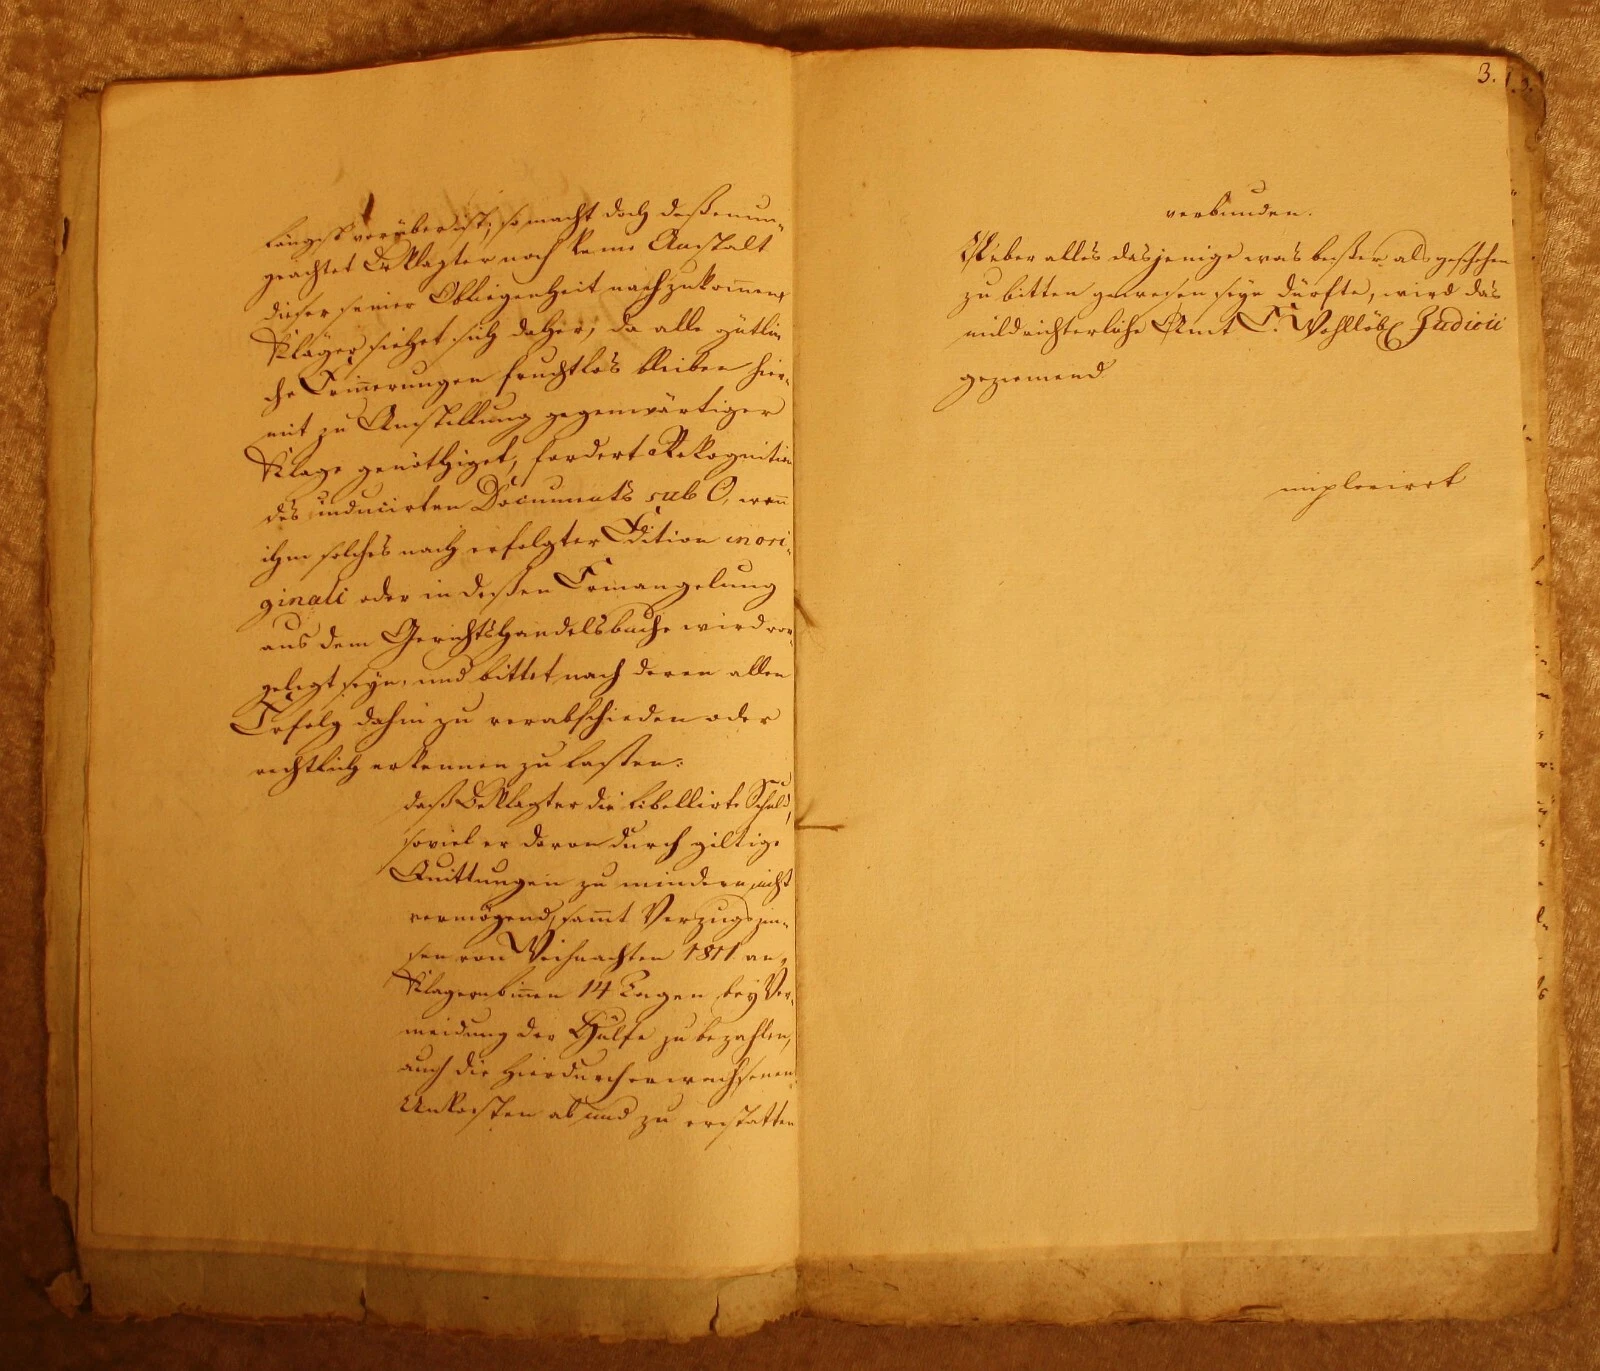 längst vorüber ist, so macht doch deßenun-
geachtet Beklagter noch keine Anstalt
dieser seiner Obliegenheit nachzukom̅en,
Kläger siehet sich daher, da alle gütli-
che Erin̅erungen fruchtlos blieben hier-
mit zu Anstellung gegenwärtiger
Klage genöthiget, fordert Rekognition
des inducirten Documents sub O, wen̅
ihm solches nach erfolgter Edition in ori-
ginali oder in deßen Ermangelung
aus dem Gerichtshandelsbuche wird vor-
gelegt seyn, und bittet nach deren allen
Erfolg dahin zu verabschieden oder
rechtlich erkennen zu laßen:
daß Beklagter die libellirte Schuld,
soviel er davon durch giltige
Quittungen zu mindern nicht
vermögend, sam̅t Verzugszin-
sen von Weihnachten 1811 an,
Klägern bin̅en 14 Tagen bey Ver-
meidung der Hülfe zu bezahlen,
auch die hierdurch erwachsenen
Unkosten ab und zu erstatten
3.
verbunden.
Ueber alles dasjenige was beßer als geschehen
zu bitten gewesen seyn dürfte, wird das
mildrichterliche Amt E. Wohllöbl. Judicii
geziemend
implorirt